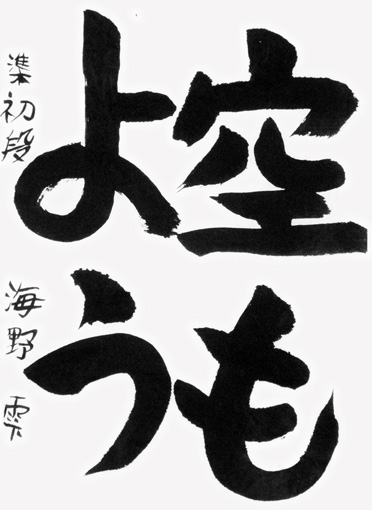 空も
よう
準初段
海野 雫